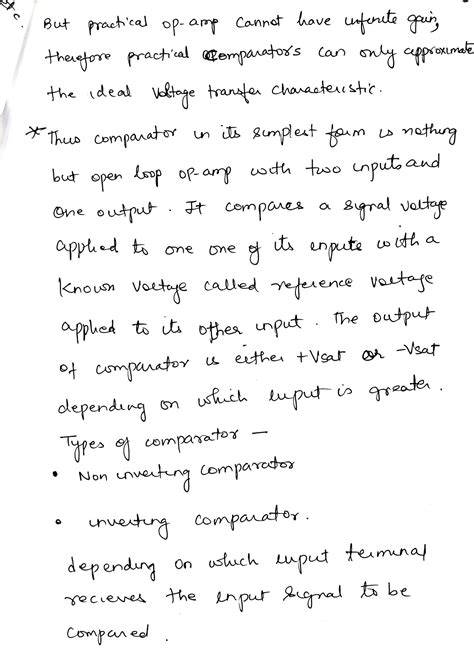 But practical op-amp cannot have infinite gain,
therefore practical comparators can only approximate
the ideal voltage transfer characteristic.
* Thus comparator in its simplest form is nothing
but open loop op-amp with two inputs and
one output. It compares a signal voltage
applied to one one of its inputs with a
known voltage called reference voltage
applied to its other input. The output
of comparator is either +Vsat or -Vsat
depending on which input is greater.
Types of comparator —
• Non inverting comparator
• inverting comparator.
depending on which input terminal
recieves the input signal to be
compared.